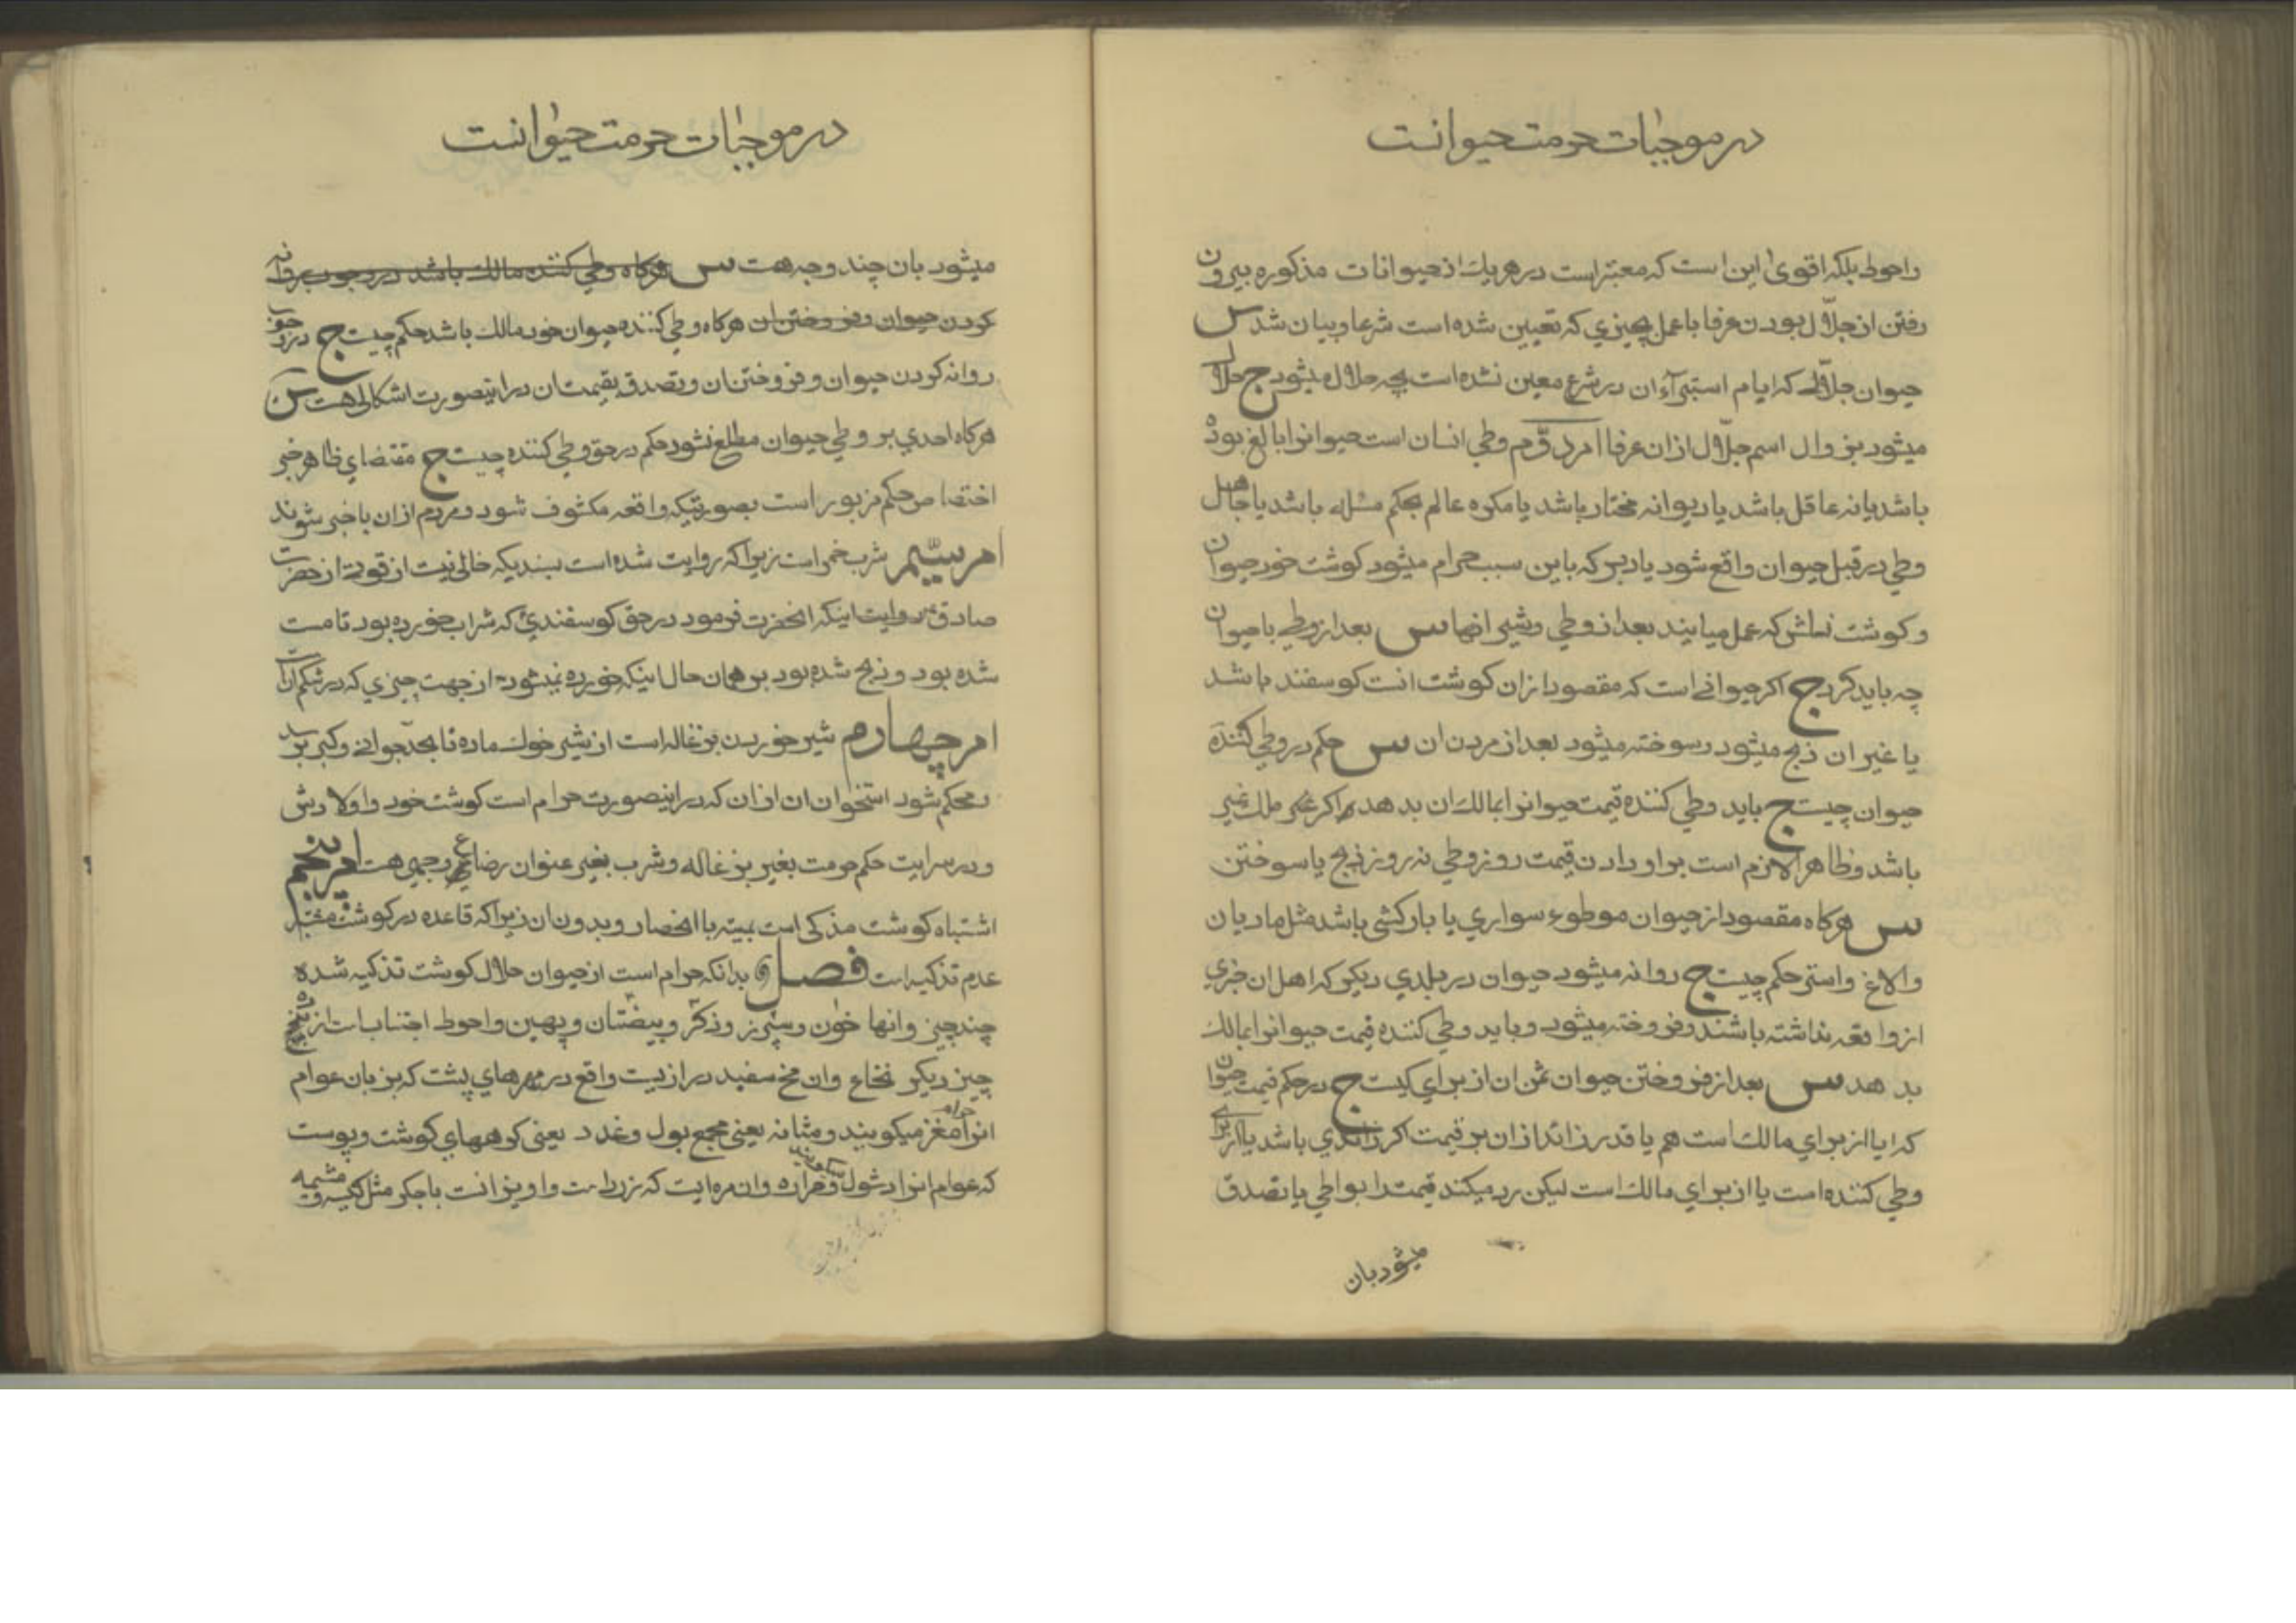 در موجبات حرمت حیوانست
واحوط بلکه اقوی این است که معتبر است در هریك از حیوانات مذکوره بیرون
رفتن از جلّال بودن عرفا با عمل بچیزی که تعیین شده است شرعا و بیان شد س
حیوان جلّالے که ایام استبرآء آن در شرع معین نشده است بچه حلال میشود ج حلال
میشود بزوال اسم جلّال از ان عرفا امر دوّم وطی انسان است حیوانرا بالغ بوده
باشد یا نه عاقل باشد یا دیوانه مختار باشد یا مکره عالم بحکم مسئله باشد یا جاهل
وطی در قبل حیوان واقع شود یا دبر که باین سبب حرام میشود کوشت خود حیوان
و کوشت نسلش که بعمل میایند بعد از وطی وشیر انها س بعد از وطی با حیوان
چه باید کرد ج اکر حیوانے است که مقصود از ان کوشت انست کوسفند باشد
یا غیر ان ذبح میشود وسوخته میشود بعد از مردن ان س حکم در وطی کننده
حیوان چیست ج باید وطی کننده قیمت حیوانرا بمالك ان بدهد اکر ملك غیر
باشد وظاهرا لازم است بر او دادن قیمت روز وطی نه روز ذبح یا سوختن
س هرکاه مقصود از حیوان موطوء سواری یا بارکشی باشد مثل مادیان
والاغ واستر حکم چیست ج روانه میشود حیوان در بلدی دیکر که اهل ان خبری
از واقعه نداشته باشند وفروخته میشود وباید وطی کننده قیمت حیوانرا بمالك
بدهد س بعد از فروختن حیوان ثمن ان از برای کیست ج در حکم قیمت حیوان
که ایا از برای مالك است هم یا قدر زائد از ان بر قیمت اکر زائدی باشد یا از برای
وطی کننده است یا از برای مالك است لیکن رد میکند قیمت را بواطی یا تصدق
میشود بان
در موجبات حرمت حیوانست
میشود بان چند وجه هست س هرکاه وطی کننده مالك باشد در وجوب روانه
کردن حیوان وفروختن ان هرکاه وطی کننده حیوان خود مالك باشد حکم چیست ج در وجوب
روانه کردن حیوان وفروختن ان وتصدق بقیمت ان در اینصورت اشکالی هست س
هرکاه احدی بر وطی حیوان مطلع نشود حکم در حق وطی کننده چیست ج مقتضای ظاهر خبر
اختصاص حکم مزبور است بصورتیکه واقعه مکشوف شود ومردم از ان با خبر شوند
امر سیّم شرب خمر است زیرا که روایت شده است بسندیکه خالی نیست از قوّت از حضرت
صادق ع روایت اینکه انحضرت فرمود در حق کوسفندی که شراب خورده بود تا مست
شده بود وذبح شده بود بر همان حال اینکه خورده نمیشود از جهت چیزی که در شکم انست
امر چهارم شیر خوردن بزغاله است از شیر خوك ماده تا بحدّ جوانی وکبر برسد
ومحکم شود استخوان ان از ان که در اینصورت حرام است کوشت خود واولادش
ودر سرایت حکم حرمت بغیر بزغاله وشرب بغیر عنوان رضاع وجهی هست امر پنجم
اشتباه کوشت مذکی است بمیته با انحصار وبدون ان زیرا که قاعده در کوشت مشتبه
عدم تذکیه است فصل بدانکه حرام است از حیوان حلال کوشت تذکیه شده
چند چیز وانها خون وسپرز وذکر وبیضتان وپهین واحوط اجتناب است از پنج
چیز دیکر نخاع وان مخ سفید درازیست واقع در مهرهای پشت که بزبان عوام
انرا مغز حرام میکویند ومثانه یعنی مجمع بول وغدد یعنی کوههای کوشت وپوست
که عوام انرا دشول میکویند ومراره وان مره ایست که زرد است واویزانست با جکر مثل کیسه ومشیمه